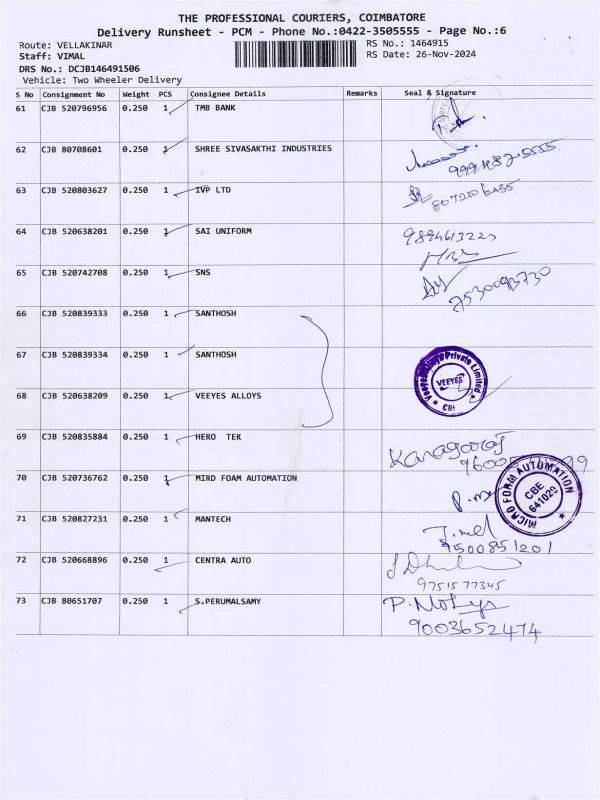 THE PROFESSIONAL COURIERS, COIMBATORE
Delivery Runsheet - PCM - Phone No.:0422-3505555 - Page No.:6
Route: VELLAKINAR
RS No.: 1464915
Staff: VIMAL
RS Date: 26-Nov-2024
DRS No.: DCJB146491506
Vehicle: Two Wheeler Delivery
S No Consignment No Weight PCS Consignee Details Remarks Seal & Signature
61 CJB 520796956 0.250 1 TMB BANK
62 CJB 80708601 0.250 1 SHREE SIVASAKTHI INDUSTRIES
63 CJB 520803627 0.250 1 IVP LTD
64 CJB 520638201 0.250 1 SAI UNIFORM
65 CJB 520742708 0.250 1 SNS
7530093730
66 CJB 520839333 0.250 1 SANTHOSH
67 CJB 520839334 0.250 1 SANTHOSH
Private Limited
VEEYES
CBE
68 CJB 520638209 0.250 1 VEEYES ALLOYS
69 CJB 520835884 0.250 1 HERO TEK
70 CJB 520736762 0.250 1 MIRD FOAM AUTOMATION
MICRO FORM AUTOMATION
CBE
641029
71 CJB 520827231 0.250 1 MANTECH
9500851201
72 CJB 520668896 0.250 1 CENTRA AUTO
9751577345
73 CJB 80651707 0.250 1 S.PERUMALSAMY
9003652474